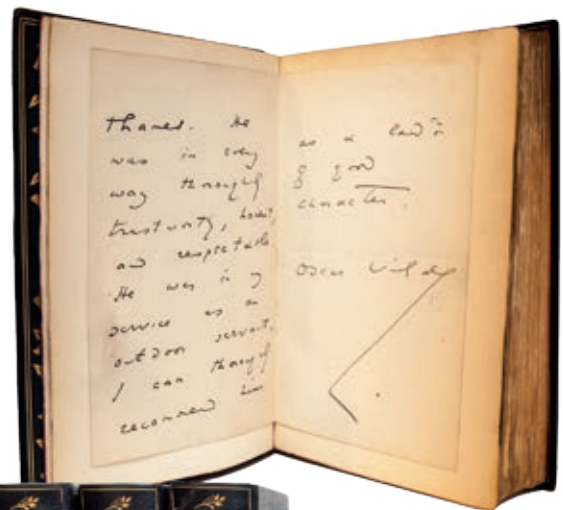 Thames. He
was in every
way thoroughly
trustworthy, honest,
and respectable
He was in my
service as an
outdoor servant.
I can thoroughly
recommend him
as a
of good
character.
Oscar Wilde